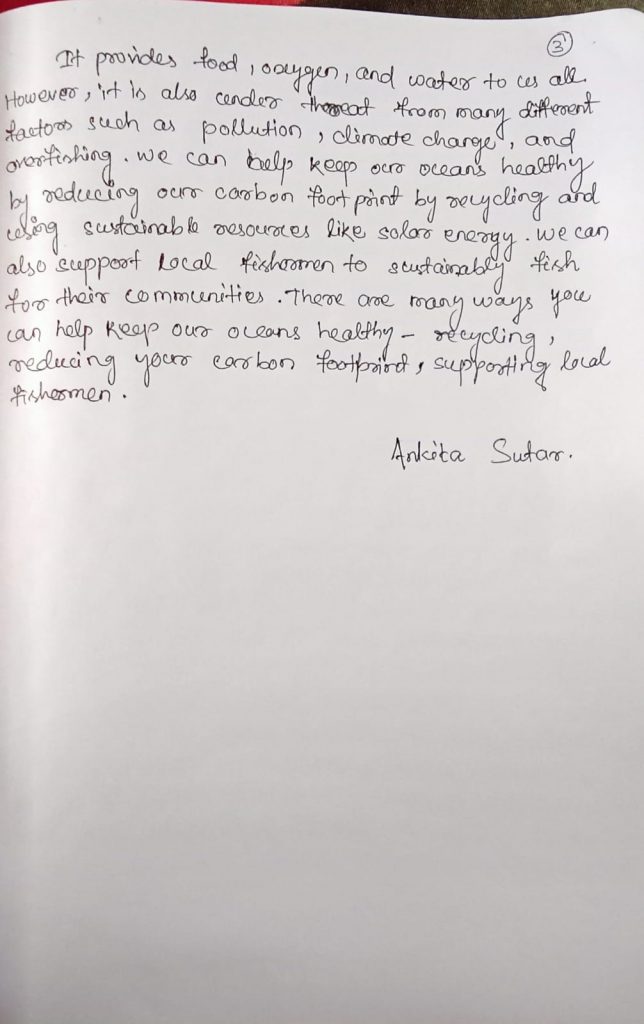 3
It provides food, oxygen, and water to us all.
However, it is also under threat from many different
factors such as pollution, climate change, and
overfishing. We can help keep our oceans healthy
by reducing our carbon foot print by recycling and
using sustainable resources like solar energy. We can
also support local fishermen to sustainably fish
for their communities. There are many ways you
can help keep our oceans healthy - recycling,
reducing your carbon footprint, supporting local
fishermen.
Ankita Sutar.